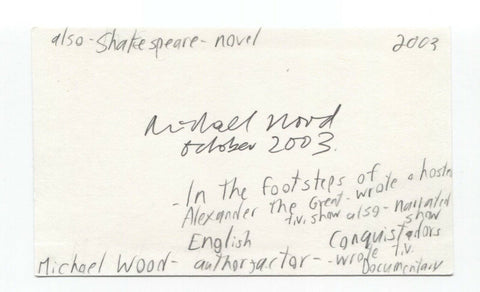 also - Shakespeare - novel 2003
Michael Wood
October 2003.
- In the footsteps of
Alexander the Great - wrote & hosted
t.v. show also - narrated
English Conquistadors show
Michael Wood - author, actor - - wrote t.v.
Documentary